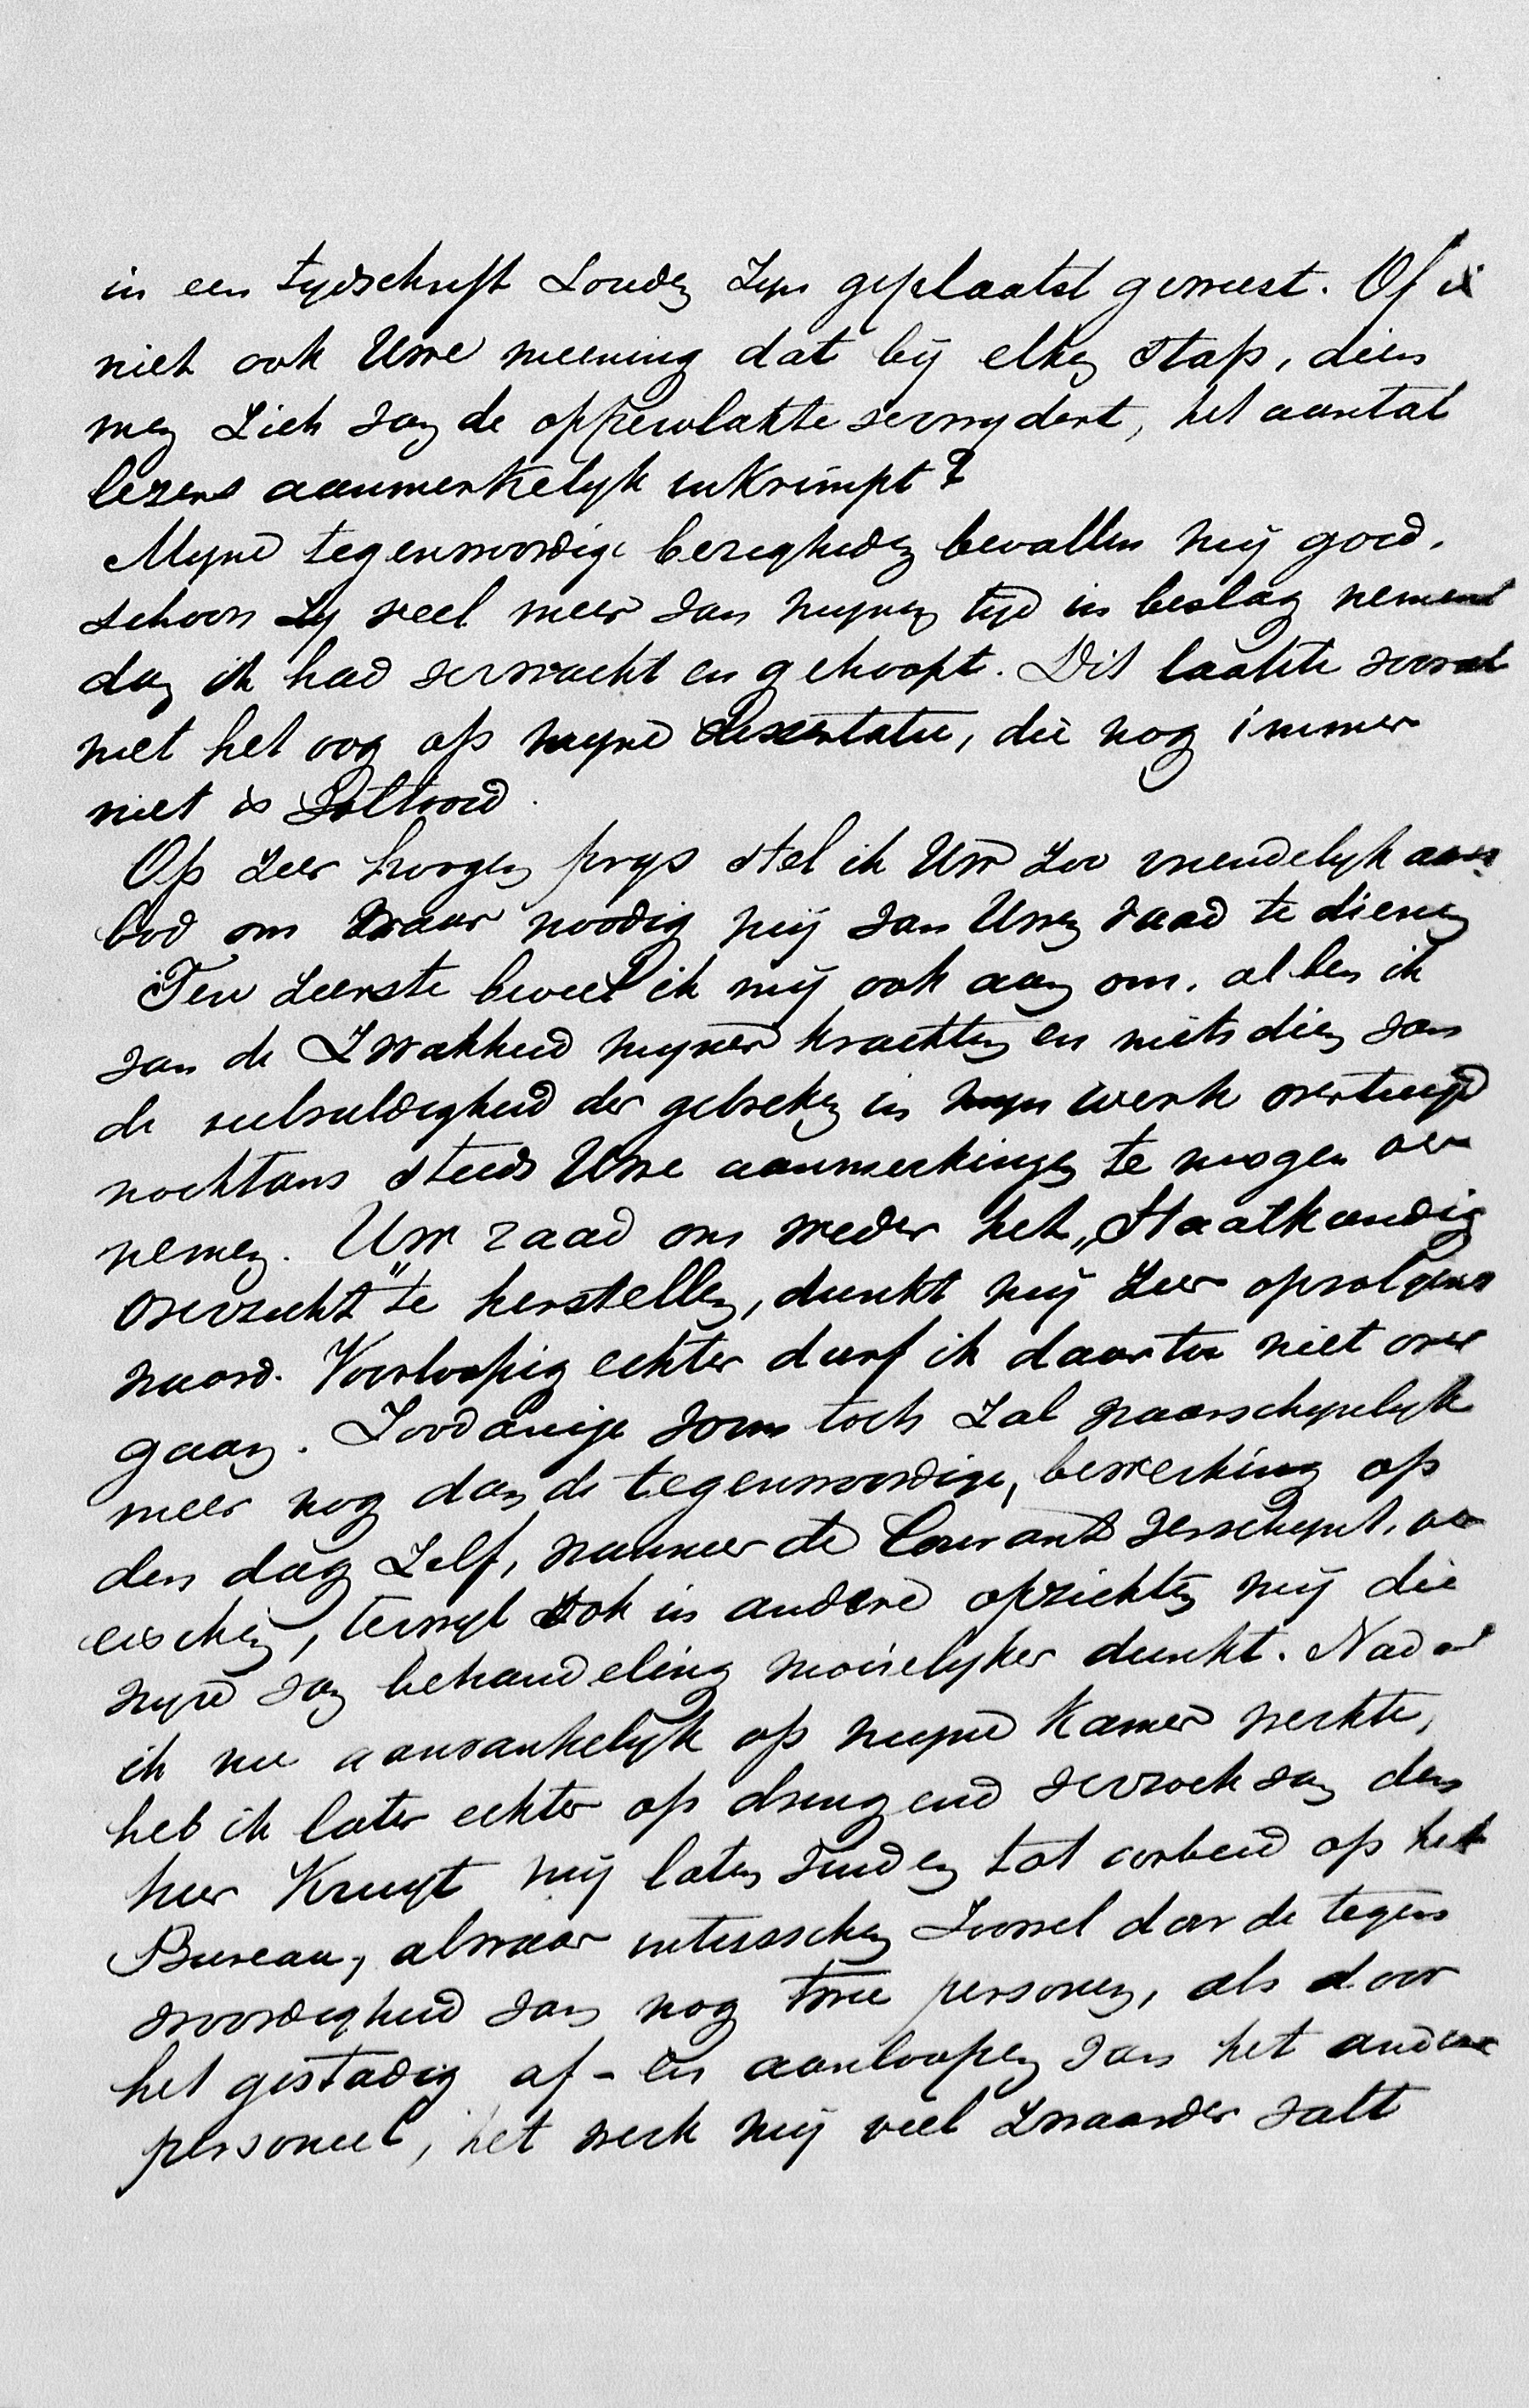 in een tydschrift zouden zyn geplaatst geweest. Of is
niet ook Uwe meening dat bij elken stap, dien
men zich van de oppervlakte verwydert, het aantal
lezers aanmerkelyk inkrimpt?
Myne tegenwoordige bezigheden bevallen mij goed,
schoon zy veel meer van mynen tyd in beslag nemen
dan ik had verwacht en gehoopt. Dit laatste vooral
met het oog op myne dissertatie, die nog immer
niet is voltooid.
Op zeer hoogen prys stel ik Uw zoo vriendelyk aan
bod om waar noodig mij van Uwen raad te dienen
Ten zeerste beveel ik mij ook aan om, al ben ik
van de zwakheid myner krachten en mitsdien van
de veelvuldigheid der gebreken in myn werk overtuigd
nochtans steeds Uwe aanmerkingen te mogen ver
nemen. Uw raad om weder het „Staatkundig
Overzicht" te herstellen, dunkt mij zeer opvolgens
waard. Voorloopig echter durf ik daartoe niet over
gaan. Zoodanige vorm toch zal waarschynlyk
meer nog dan de tegenwoordige, bewerking op
den dag zelf, wanneer de Courant verschynt, ver
eischen, terwyl ook in andere opzichten mij die
wyze van behandeling moeielyker dunkt. Nadat
ik nu aanvankelyk op myne kamer werkte,
heb ik later echter op dringend verzoek van den
heer Kruyt mij laten vinden tot arbeid op het
Bureau, alwaar intusschen zoowel door de tegen
woordigheid van nog twee personen, als door
het gestadig af- en aanloopen van het andere
personeel, het werk mij veel zwaarder valt